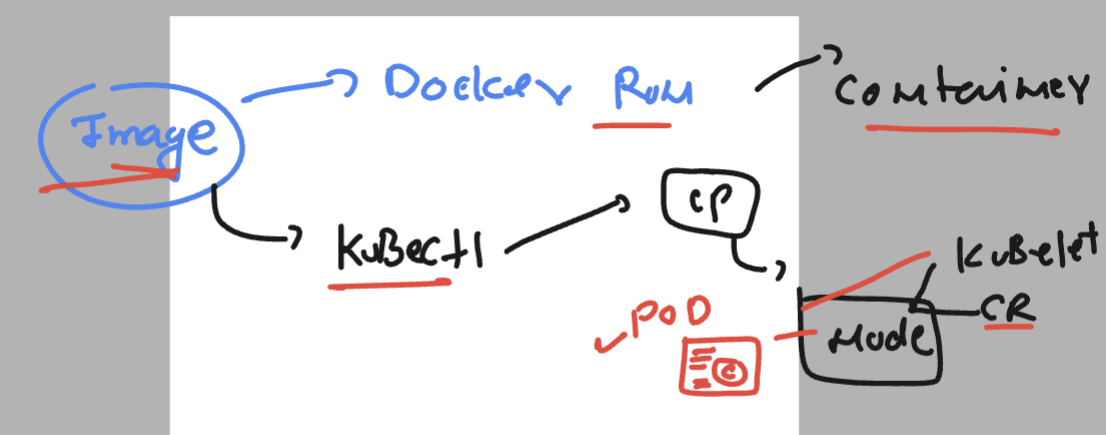 Image
Docker Run
Container
KuBectl
CP
KuBelet
CR
Node
POD
C